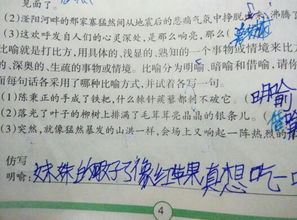 见面了。
(2)滏阳河畔的那家寨猛然间从地震后的悲痛气氛中挣脱
(3)这欢呼发自人们的心灵深处,是那么响亮,那么(
比喻就是打比方,用具体的、浅显的、熟知的一个事物或情境来比方
的、深奥的、生疏的事物或情境。比喻分为明喻、暗喻和借喻,请你
面每句话各采用了哪种比喻方式,并试着各写一句。
(1)陈秉正的手成了铁耙,什么棘针蒺藜都刺不破它。(明喻
(2)落光了叶子的柳树上排满了毛茸茸亮晶晶的银条儿。(
(3)突然,就像猛然暴发的山洪一样,会场上又响起一阵热烈的
仿写
明喻:妹妹的
像红苹果真想吃一口
4